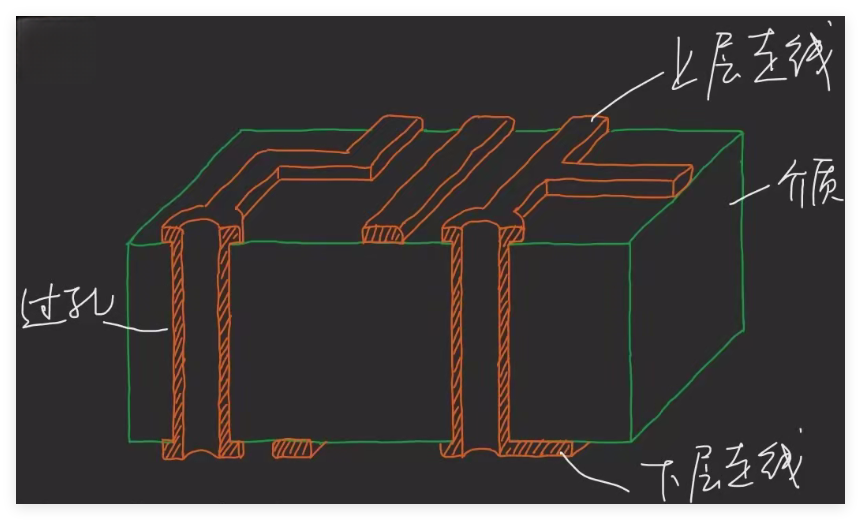 上层走线
介质
过孔
下层走线